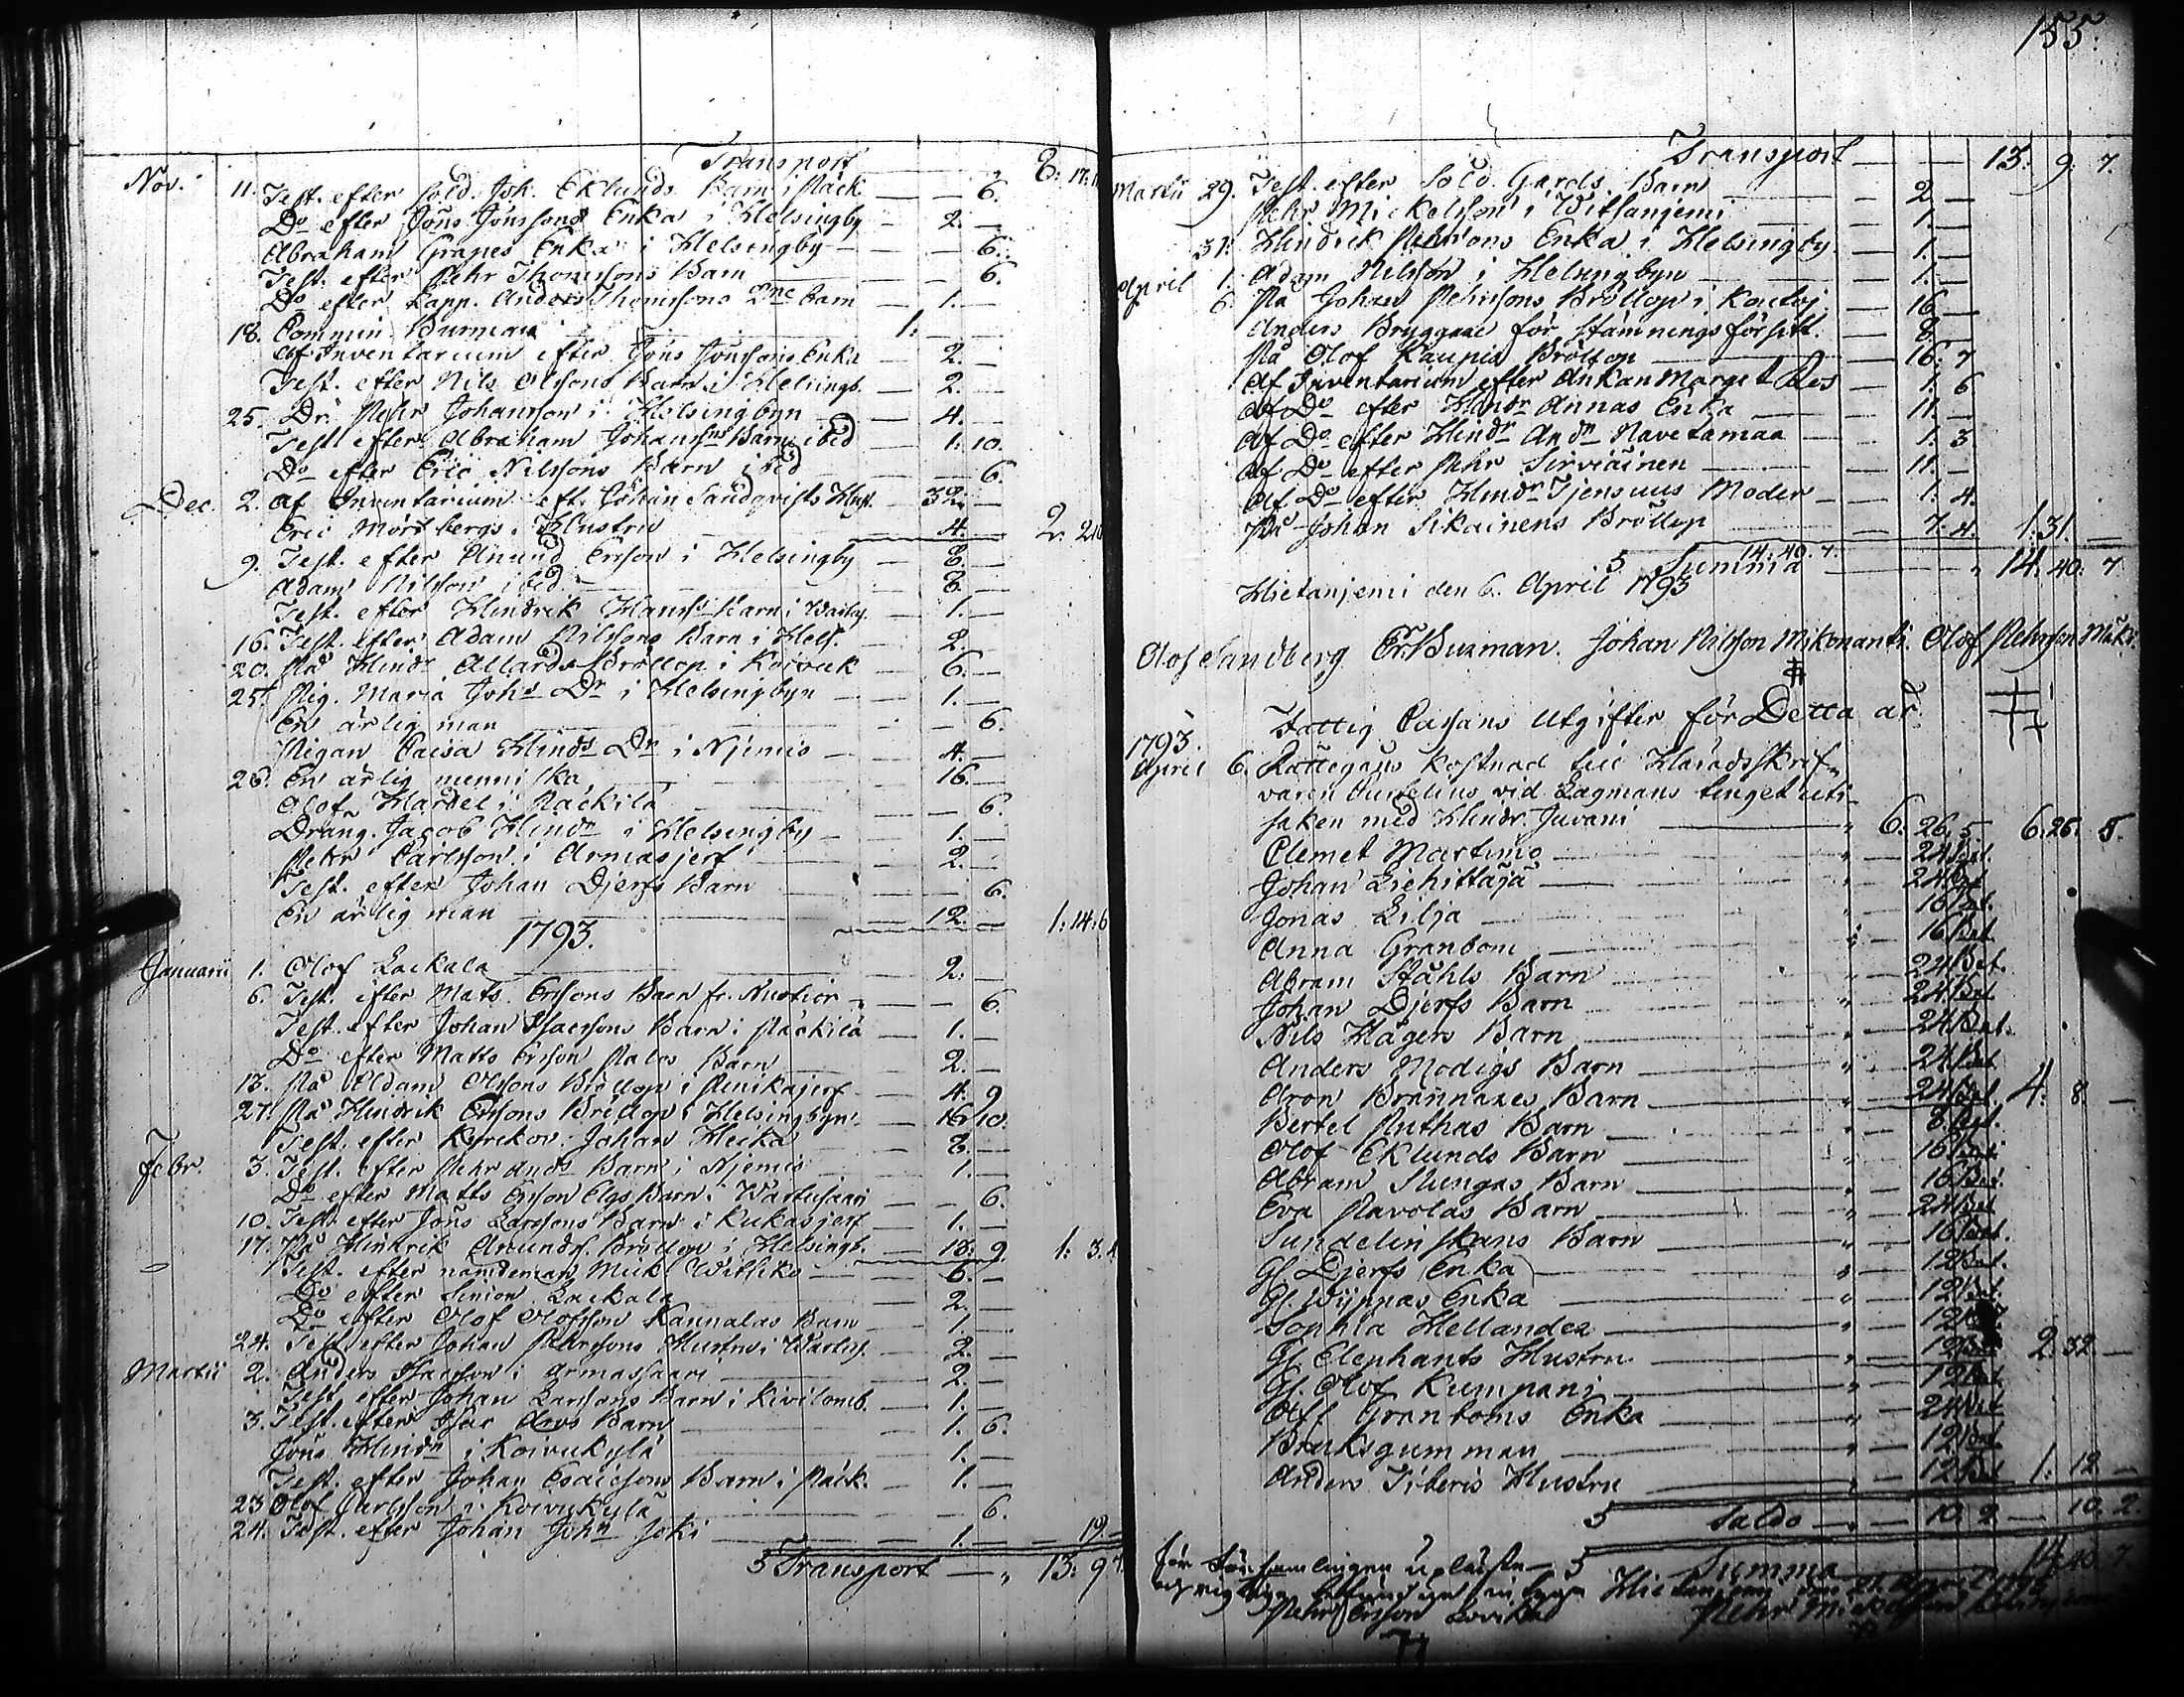 Transport 8: 17.
Nov. 11. Test. efter Sold. Joh. Eklunds Barn i Päck — 6.
Do efter Jöns Jönssons Enka i Helsingby — 2. —
Abraham Grapes Enka i Helsingby — 6.
Test. efter Pehr Thomssons Barn — 6.
Do. efter Lapp. Anders Thomssons 2ne barn — 1. —
18. Commin. Burman 1:
Af Inventarium efter Jöns Jönssons Enka — 2. —
Test. efter Nils Olssons Barn i Helsingb. — 2. —
25. Dr. Pehr Johansson i Helsingbyn — 4. —
Test. efter Abraham Johanss. Barn ibid — 1. 10.
Do efter Eric Nilssons Barn ibid — 6.
Dec. 2. Af Inventarium eft. Johan Sandqvists Hust. — 32. —
Eric Mortbergs Hustru — 4. — 2. 21
9. Test. efter Anund Ersson i Helsingby — 8. —
Adam Nilsson ibid — 8. —
Test. efter Hindrik Hanss. Barn i — 1. —
16. Test. efter Adam Nilssons Barn i Hels. — 2. —
20. På Hindr. Allards Bröllop i Koivuk — 6. —
25. Pig. Maria Johs Dr i Helsingbyn — 1. —
En ärlig man — 6.
Pigan Caisa Hinds Dr i Njemis — 4. —
26. En ärlig menniska — 16. —
Olof Hardel i Päckilä — 6.
Dräng. Jacob Hindn i Helsingby — 1. —
Pehr Carlsson i Armasjerf — 2. —
Test. efter Johan Djerfs Barn — 6.
En ärlig man — 12. — 1: 14: 6
1793.
Januarii 1. Olof Lackala — 2. —
6. Test. efter Mats Erssons Barn fr. — 6.
Test. efter Johan Isacssons Barn i Päckilä — 1. —
Do efter Matts Ersson Palos Barn — 2. —
13. På Adam Olssons Bröllop i — 4. 9
27. På Hindrik Erssons Bröllop i Helsingbyn — 16. 10.
Test. efter Kyrckov. Johan Hecka — 8. —
Febr. 3. Test. efter Pehr Ands Barn i Njemis — 1. —
Do efter Matts Ersson Elgs Barn i Wartusaari — 6.
10. Test. efter Jöns Larssons Barn i Kukasjerf — 1. —
17. På Hindrik Anunds. Bröllop i Helsingb. — 18. 9 1: 3.
Test. efter nämdeman Mick. Witliko — 6. —
Do efter Simon Lackala — 2. —
Do efter Olof Olofsson Kannalas Barn — 1. —
24. Test. efter Johan Pehrssons Hustru i — 2. —
Martii 2. Anders Isacsson i Armassaari — 2. —
Test. efter Johan Larssons Barn i Kivilomb. — 1. —
3. Test. efter Isac Aros Barn — 1. 6.
Jöns Hindn i Koivukylä — 1. —
Test. efter Johan Esaiessons Barn i Päck. — 1. —
23 Olof Carlsson i Koivukylä — 6.
24. Test. efter Johan John Joki — 1. — 19. —
Transport — 13: 9
155:
Transport — 13: 9. 7.
Martii 29. Test. efter Sold. Gards Barn — 2 —
Pehr Mickelsson i Witsanjemi — 1. —
31. Hindrik Pehrsons Enka i Helsingby. — 1. —
April 1. Adam Nilsson i Helsingbyn — 1. —
6. På Johan Pehrssons Bröllop i — 16. —
Anders Bryggare för stämningsförsitt. — 8. —
På Olof Kaupis Bröllop — 16. 7
Af Inventarium efter Änkan Marget Ros — 1. 6
Af Do efter Hindr. Annas Enka — 11. —
Af Do efter Hindr Andn Navetamaa — 1. 3
Af Do efter Pehr Sirviäinen — 11. —
Af Do efter Hindr Tjensuus Moder — 1. 4.
På Johan Sikainens Bröllop — 7. 4. 1: 31. —
14: 40. 7.
Summa — 14: 40: 7
Hietanjemi den 6. April 1793
Olof Sandberg Er. Burman. Johan Nilsson Mikonanti. Olof Pehrsson Mäki.
Fattig Cassans Utgifter för Detta år
1793.
April 6. Rättegåns kostnad till Häradsskrif-
varen Aurelius vid Lagmans tinget uti
saken med Hindr. Juvani — 6. 26. 5. 6: 26. 5.
Clemet Martimo — 24 Bet.
Johan Liehittäjä — 24 Bet
Jonas Lilja — 16 Bet.
Anna Granbom — 16 Bet
Abram Ståhls Barn — 24 Bet.
Johan Djerfs Barn — 24 Bet
Nils Hägers Barn — 24 Bet.
Anders Modigs Barn — 24 Bet
Aron Brännares Barn — 24 Bet. 4: 8. —
Bertel Ruthas Barn — 8 Bet.
Olof Eklunds Barn — 16 Bet
Abram Slungas Barn — 16 Bet.
Eva Pavolas Barn — 24 Bet
Sundelinskans Barn — 16 Bet.
Gl. Djerfs Enka — 12 Bet.
Gl. Wijppas Enka — 12 Bet.
Sophia Hellander — 12 Bet.
Gl. Elephants Hustru — 12 Bet 2. 32. —
Gl. Olof Kumpani — 12 Bet
Aff Granboms Enka — 24 Bet
Bruksgumman — 12 Bet
Anders Titeris Hustru — 12 Bet 1: 12 —
Saldo — 10. 2 — 10. 2.
Summa 14 40 7.
för församlingen upläste
Hietanjemi den April
Pehr Ersson Pehr Mickelsson